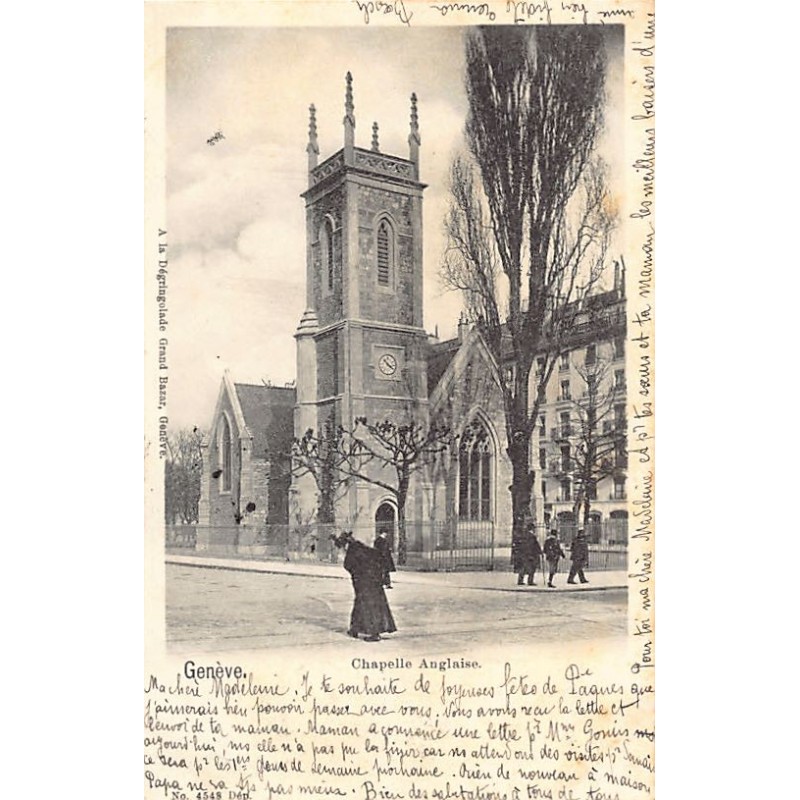 Genève.
Chapelle Anglaise.
A la Dégringolade Grand Bazar, Genève.
Ma chère Madeleine. Je te souhaite de joyeuses fêtes de Pâques que
j'aimerais bien pouvoir passer avec vous. Nous avons reçu la lettre et
l'envoi de ta maman. Maman a commencé une lettre pr Mme
aujourd'hui, ms elle n'a pas pu la finir car ns attendons des visites
ce sera pr les 1ers jours de semaine prochaine. Rien de nouveau à maison
Papa ne va tjs pas mieux. Bien des salutations à tous de tous
No. 4548 Dép.
Pour toi ma chère Madeleine et pr tes sœurs et ta maman les meilleurs baisers d'une
amie bien fidèle